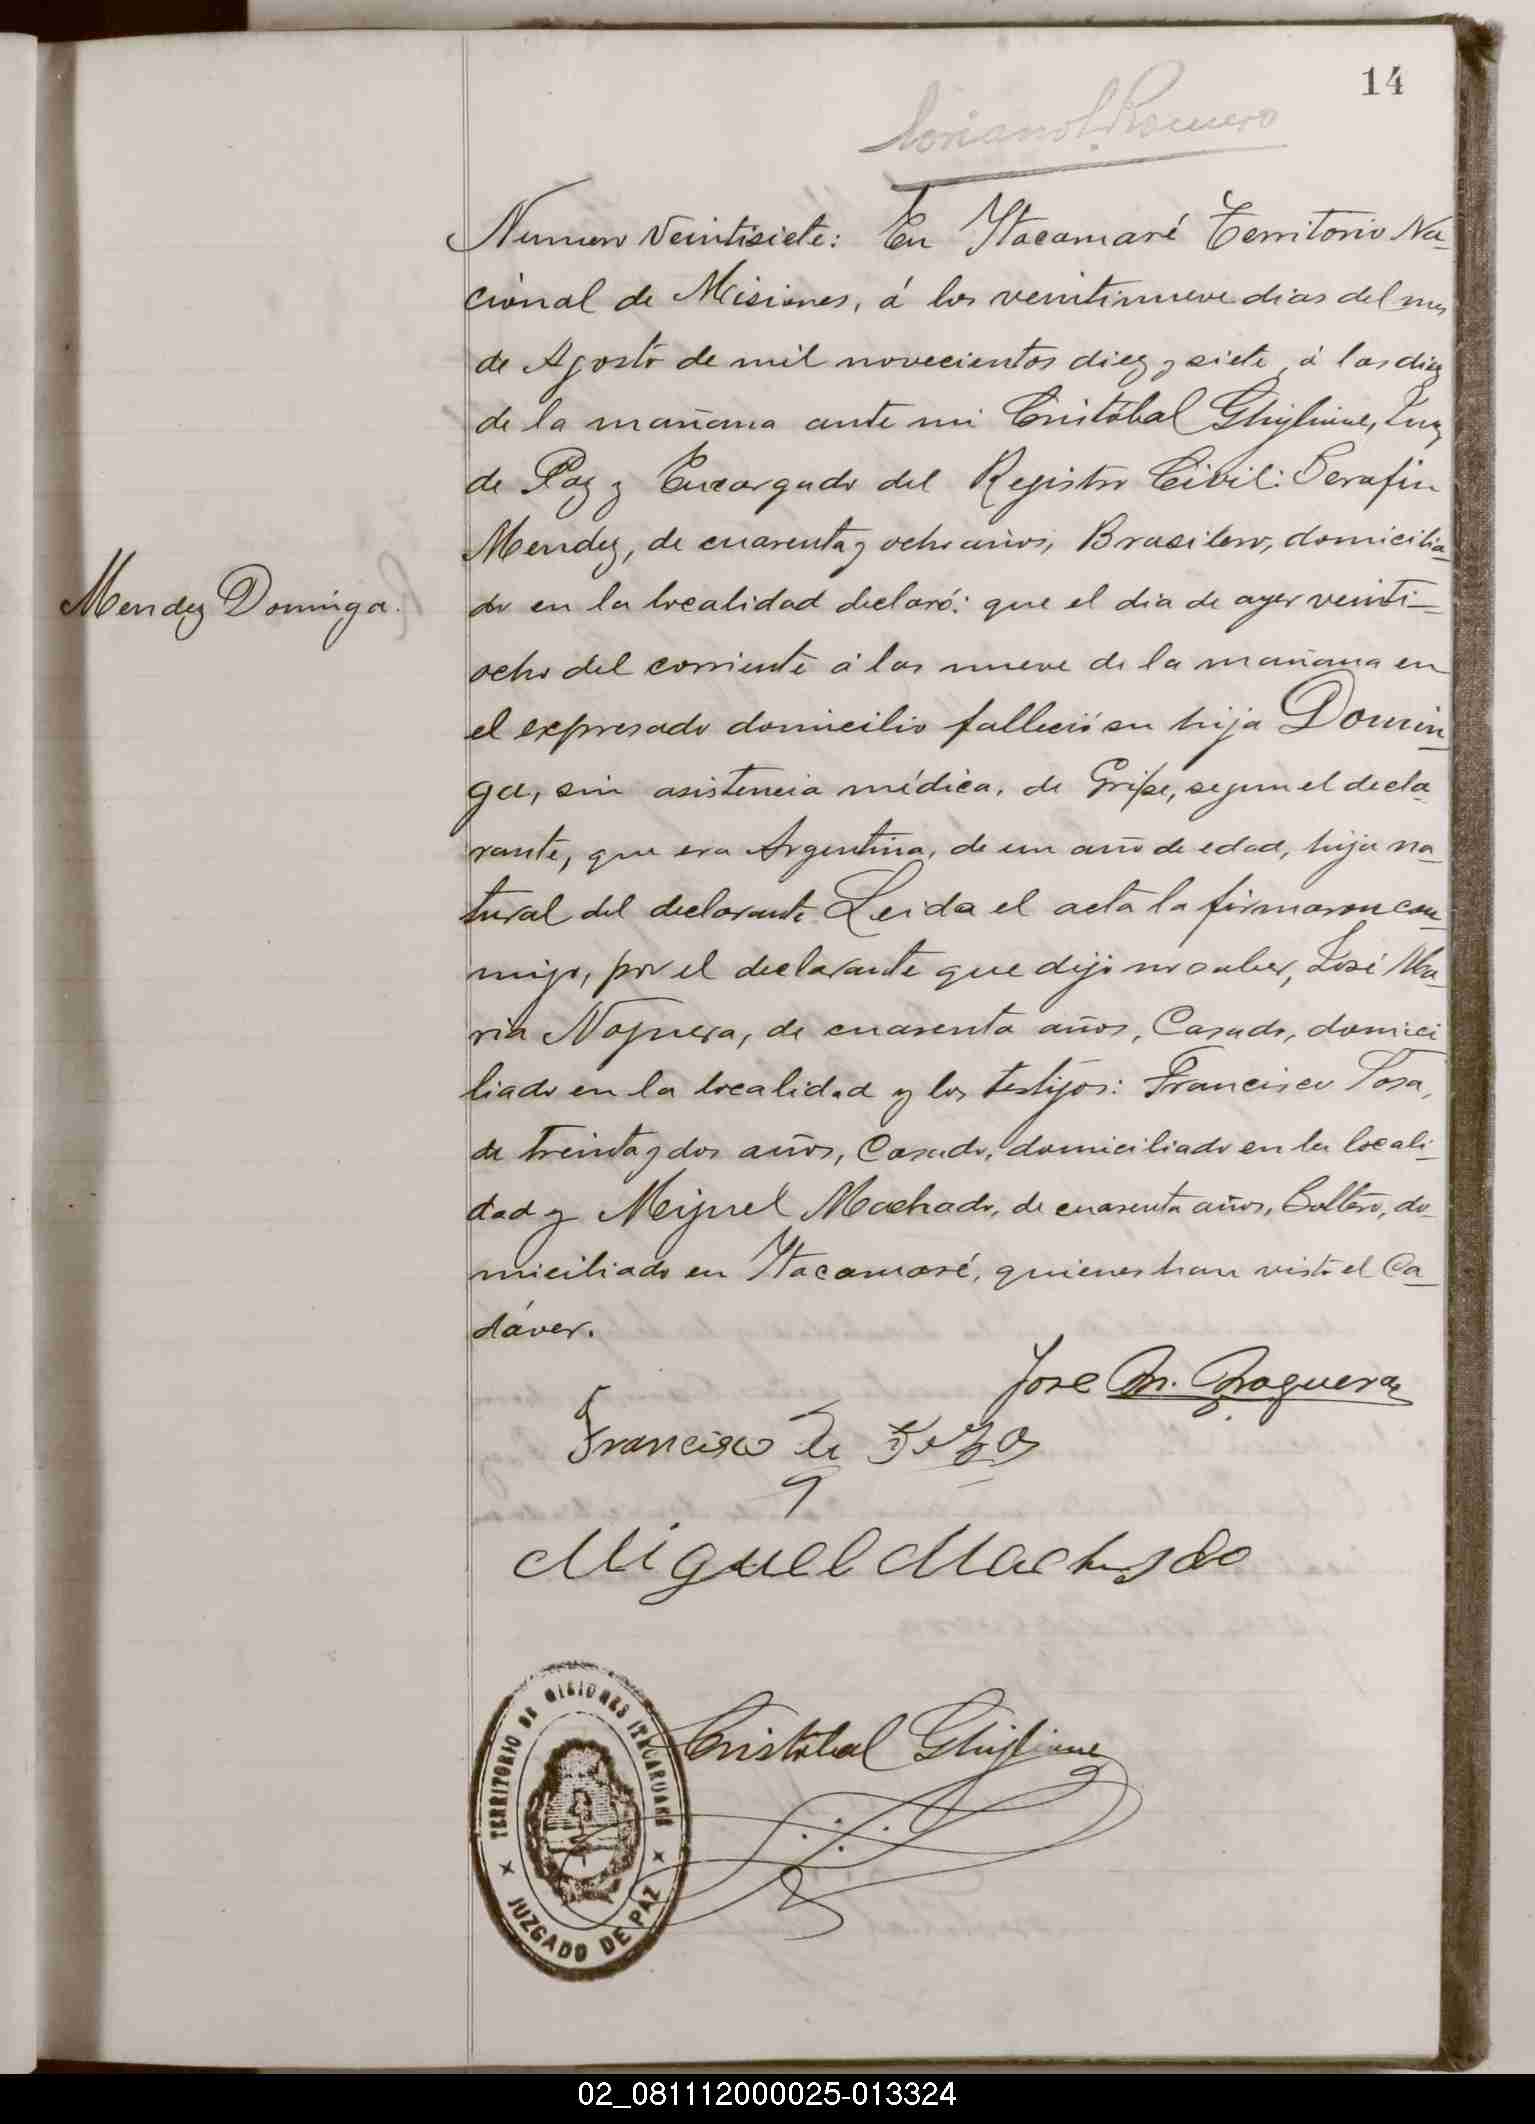 14
Numero Veintisiete: En Itacamaré Territorio Na-
cional de Misiones, á los veintinueve dias del mes
de Agosto de mil novecientos diez y siete, á las diez
de la mañana ante mi Cristóbal Ghiglione, Juez
de Paz y Encargado del Registro Civil: Serafin
Mendez, de cuarenta y ocho años, Brasilero, domicilia-
Mendez Dominga.
do en la localidad declaró: que el dia de ayer veinti-
ocho del corriente á las nueve de la mañana en
el expresado domicilio falleció su hija Domin-
ga, sin asistencia médica, de Gripe, segun el decla-
rante, que era Argentina, de un año de edad, hija na-
tural del declarante Leida el acta la firmaron con-
migo, por el declarante que dijo no saber, José Ma-
ria Noguera, de cuarenta años, Casado, domici
liado en la localidad y los testigos: Francisco Sosa,
de treinta y dos años, Casado, domiciliado en la locali-
dad y Miguel Machado, de cuarenta años, Soltero, do-
miciliado en Itacamaré, quienes han visto el Ca-
dáver.
Jose M. Noguera
Francisco
Miguel Machado
Cristobal Ghiglione
TERRITORIO DE MISIONES ITACARUARE
JUZGADO DE PAZ
02_081112000025-013324